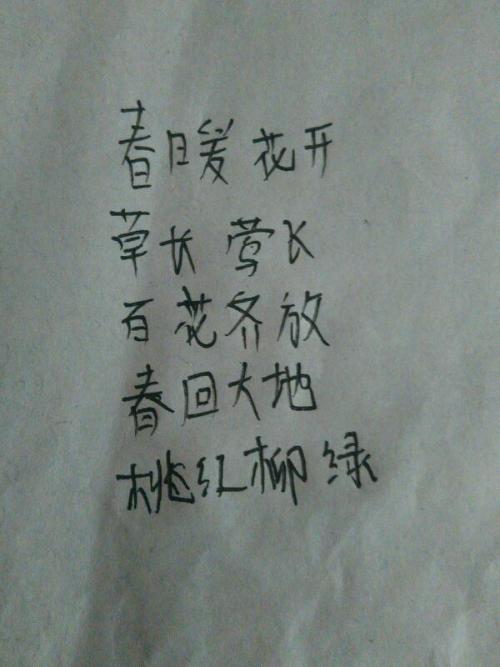 春暖花开
草长莺长
百花齐放
春回大地
桃红柳绿